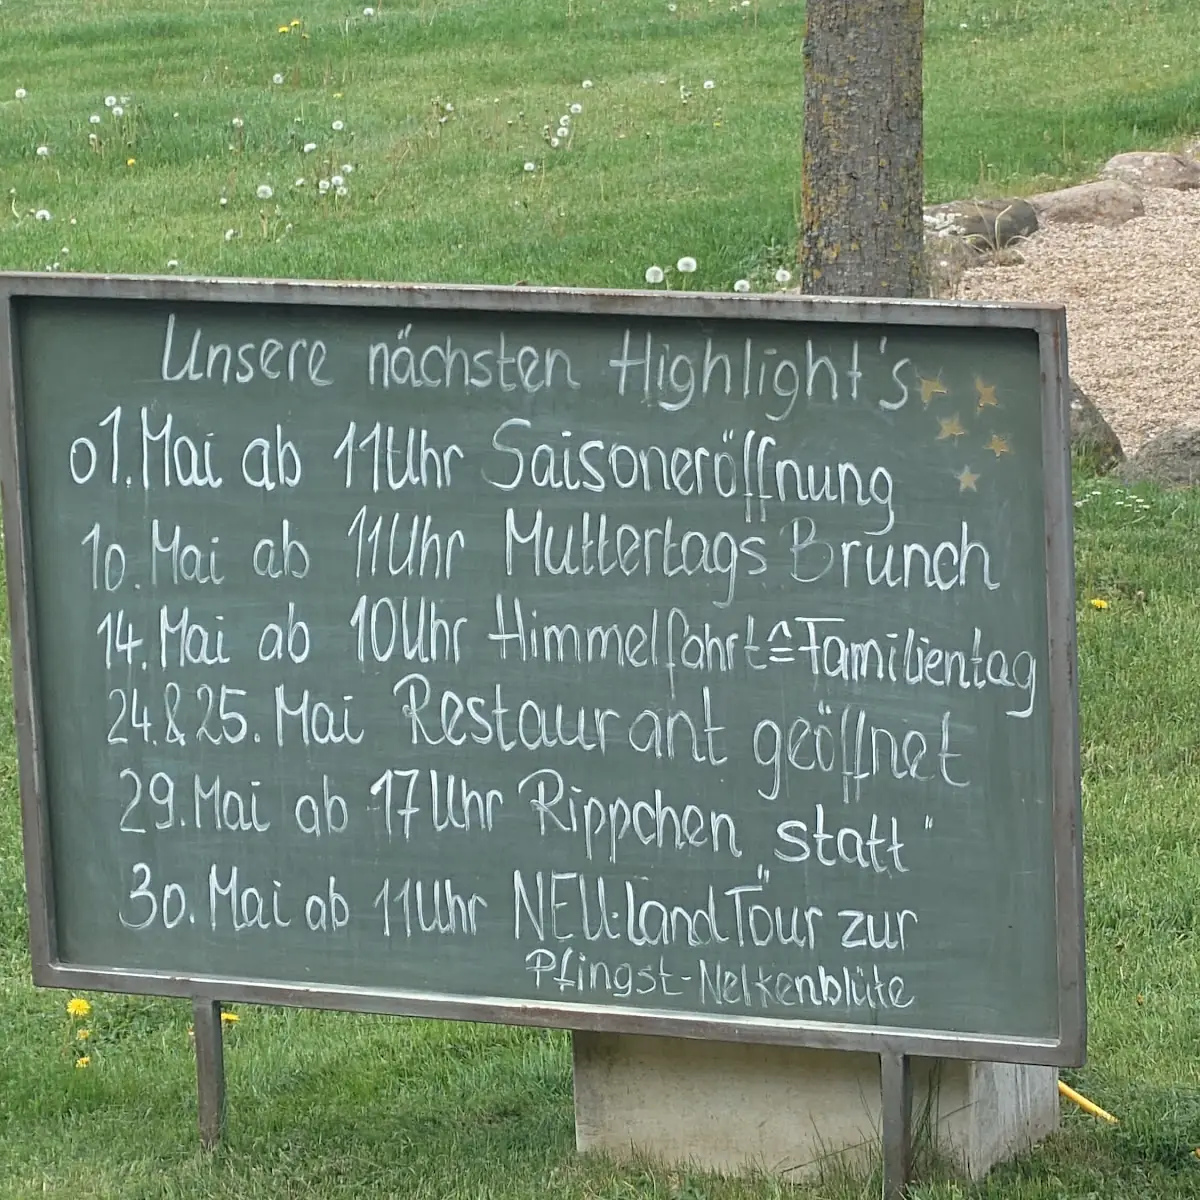 Unsere nächsten Highlight's
01. Mai ab 11 Uhr Saisoneröffnung
10. Mai ab 11 Uhr Muttertags Brunch
14. Mai ab 10 Uhr Himmelfahrt ≙ Familientag
24. & 25. Mai Restaurant geöffnet
29. Mai ab 17 Uhr Rippchen „satt"
30. Mai ab 11 Uhr NEU: „Land Tour" zur
Pfingst-Nelkenblüte